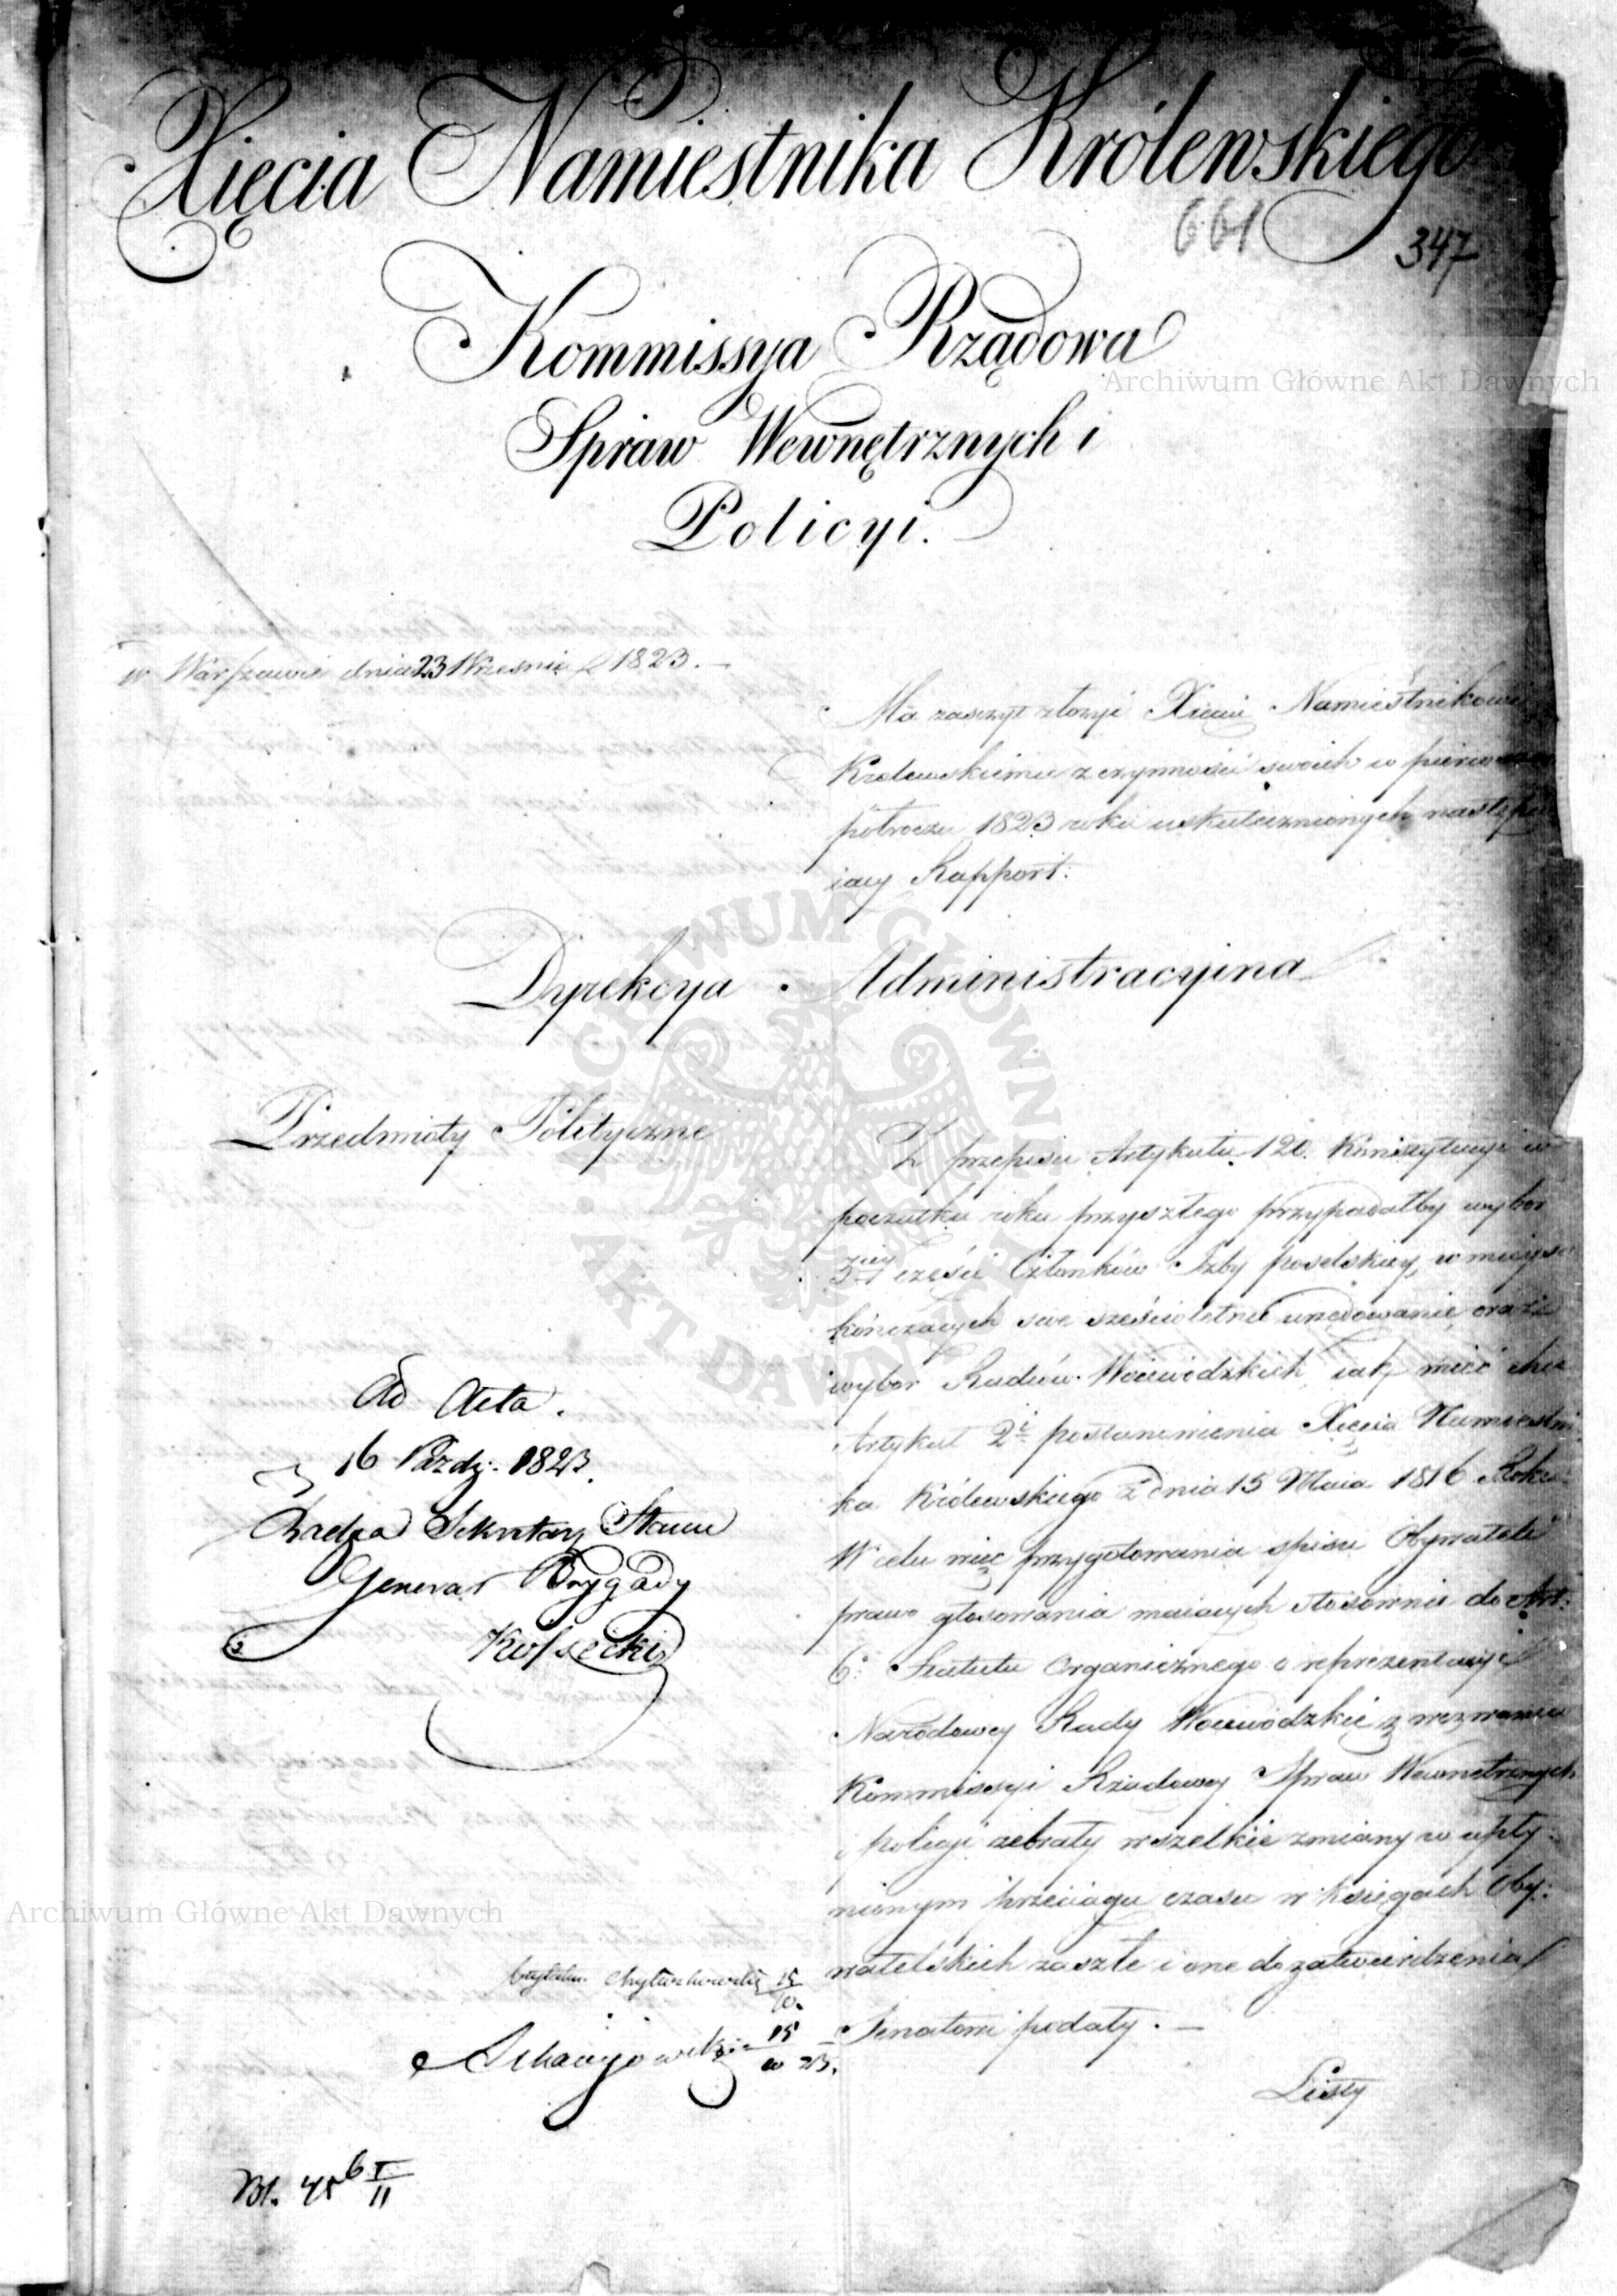 Xięcia Namiestnika Królewskiego
661
347
Kommissya Rządowa
Archiwum Główne Akt Dawnych
Spraw Wewnętrznych i
Policyi.
w Warszawie dnia 23 Września 1823. —
Ma zaszczyt złożyć Xięciu Namiestnikowi
Królewskiemu z czynności swoich w pierwszem
półroczu 1823 roku uskutecznionych następu
iący Rapport:
Dyrekcya Administracyina
Przedmioty Polityczne
Z przepisu Artykułu 120. Konstytucyi w
początku roku przyszłego przypadałby wybor
3ciey części Członków Izby poselskiey, w mieysce
kończących swe sześcioletnie urzędowanie, oraz
wybor Radców Woiewódzkich, iak mieć chce
Artykuł 2i postanowienia Xięcia Namiestni
ka Królewskiego z dnia 15 Maia 1816 Roku
W celu więc przygotowania spisu Obywateli
prawo głosowania maiących stosownie do Art:
6o Statutu Organicznego o reprezentacyi
Narodowey Rady Woiewódzkie z wezwania
Kommissyi Rządowey Spraw Wewnętrznych
i Policyi zebrały wszelkie zmiany w upły:
nionym przeciągu czasu w księgach Oby:
watelskich zaszłe i one do zatwierdzenia
Senatowi podały. —
Listy
Ad Acta.
16 Paźdz: 1823.
Radca Sekretarz Stanu
Generał Brygady
Kossecki
Archiwum Główne Akt Dawnych
15
10.
15
w 23.